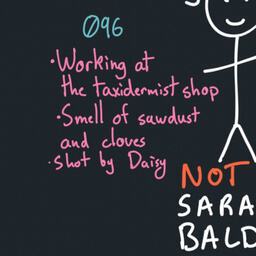 096
•Working at
the taxidermist shop
•Smell of sawdust
and cloves
•Shot by Daisy
NOT
SARA
BALD